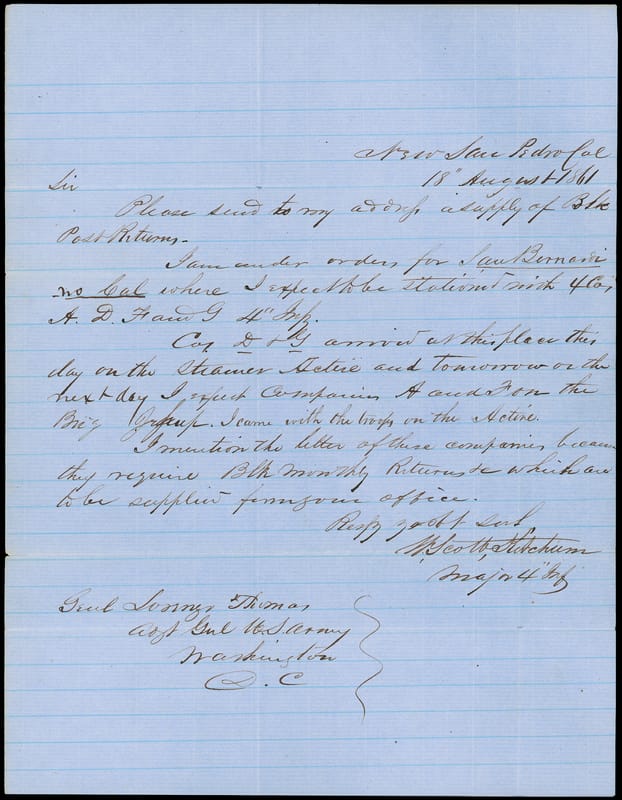 New San Pedro Cal
18" August 1861
Sir
Please send to my address a supply of Blk
Post Returns.
I am under orders for San Bernardi
no Cal where I expect to be stationed with 4 Cos
A. D. F and G 4" Inf.
Cos D & G arrived at this place this
day on the Steamer Active and tomorrow or the
next day I expect Companies A and F on the
Brig I came with the troops on the Active.
I mention the letter of these companies because
they require Blk monthly Returns &c which are
to be supplied from your office.
Respy yr obt Svt
W. Scott Ketchum
Major 4" Inf
Genl Lorenzo Thomas
Adjt Genl U.S. Army
Washington
D. C